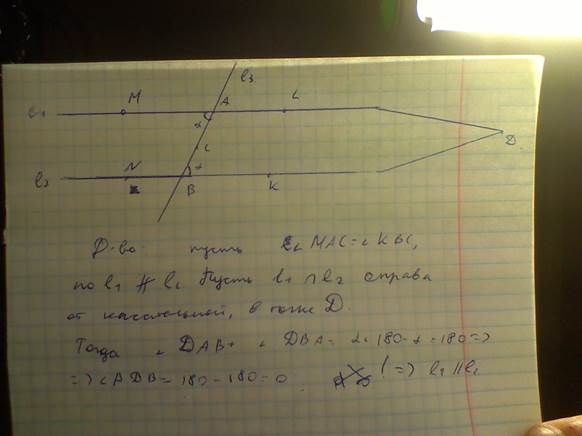 l₃
M A L
l₁
α
C
D
α
N
l₂
B K
Д-во: пусть ∠MAC=∠KBC,
но l₁ ∦ l₂. Пусть l₁ ∩ l₂ справа
от касательной, в точке D.
Тогда ∠DAB + ∠DBA = α + 180 - α = 180 =>
=> ∠ADB = 180 - 180 = 0 ! => l₁ || l₂